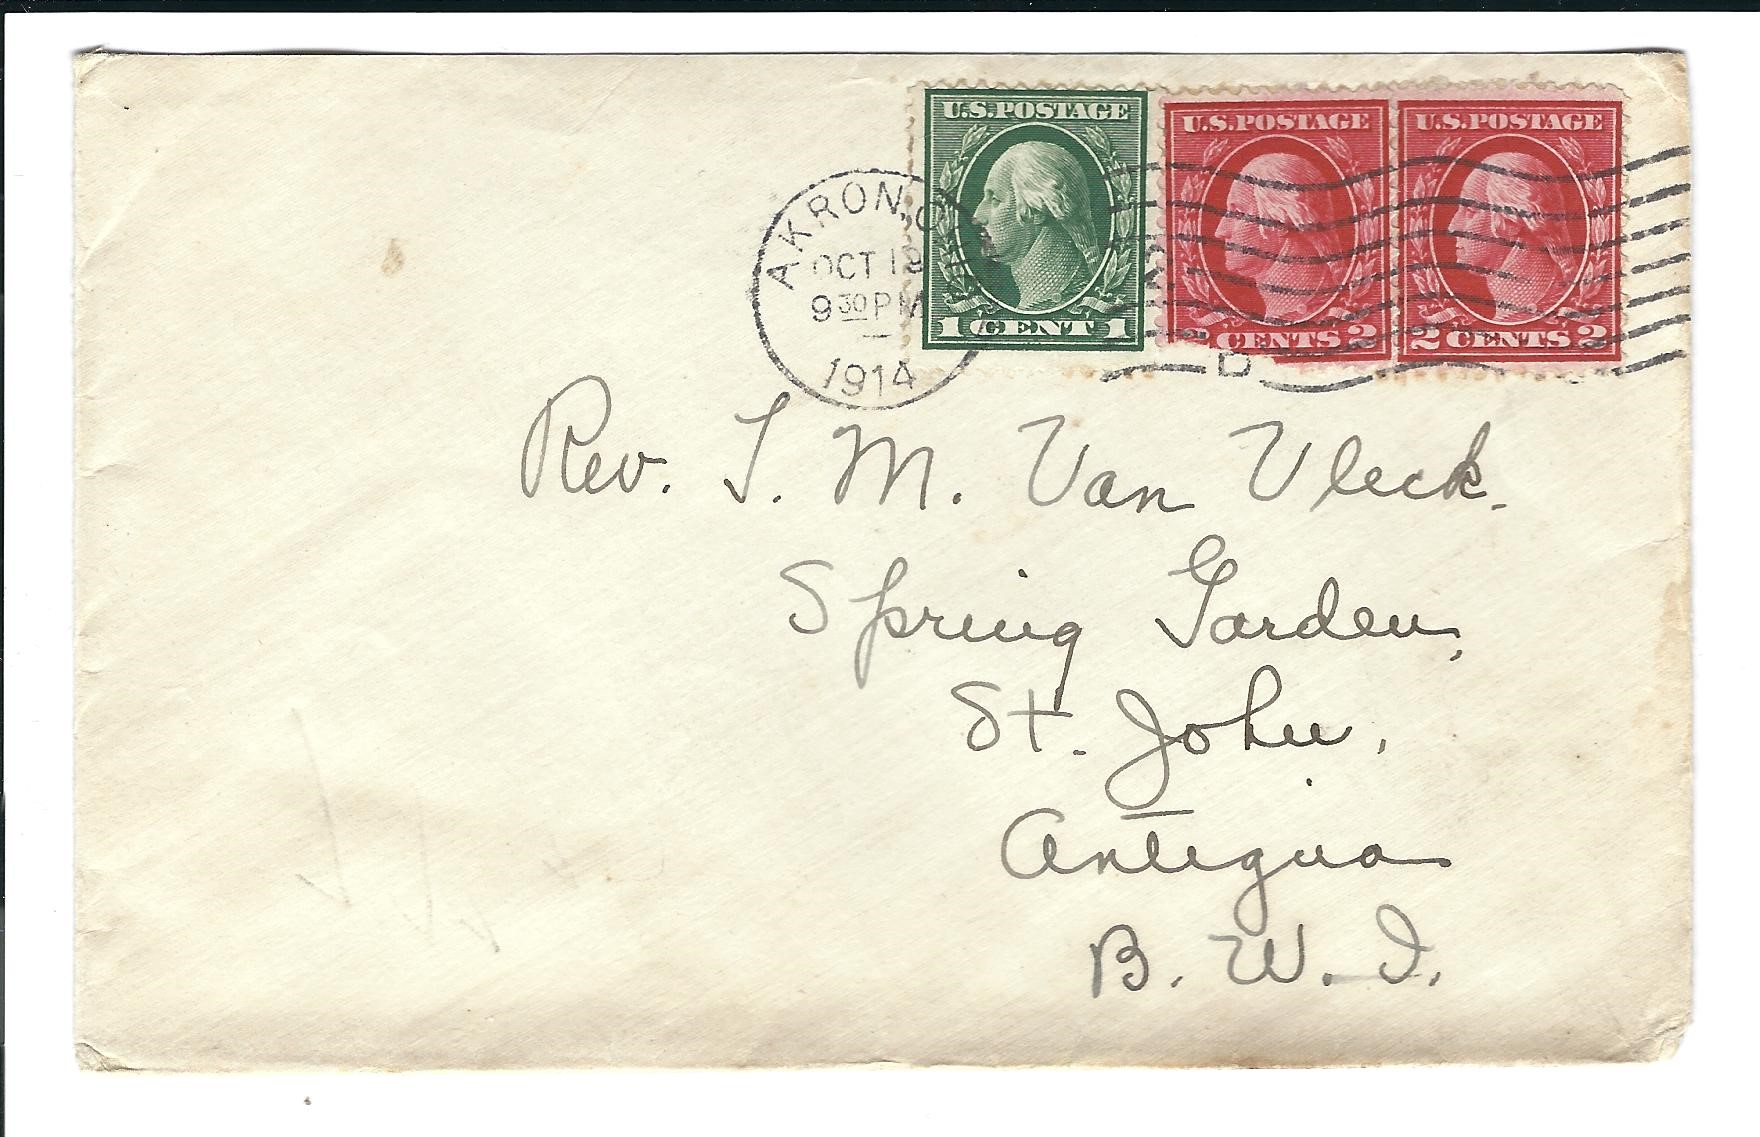 U.S. POSTAGE
1 CENT 1
U.S. POSTAGE
CENTS 2
U.S. POSTAGE
2 CENTS 2
AKRON, O
OCT 1
9 30 PM
1914
Rev. T. M. Van Vleck.
Spring Garden,
St. John,
Antigua
B. W. I.